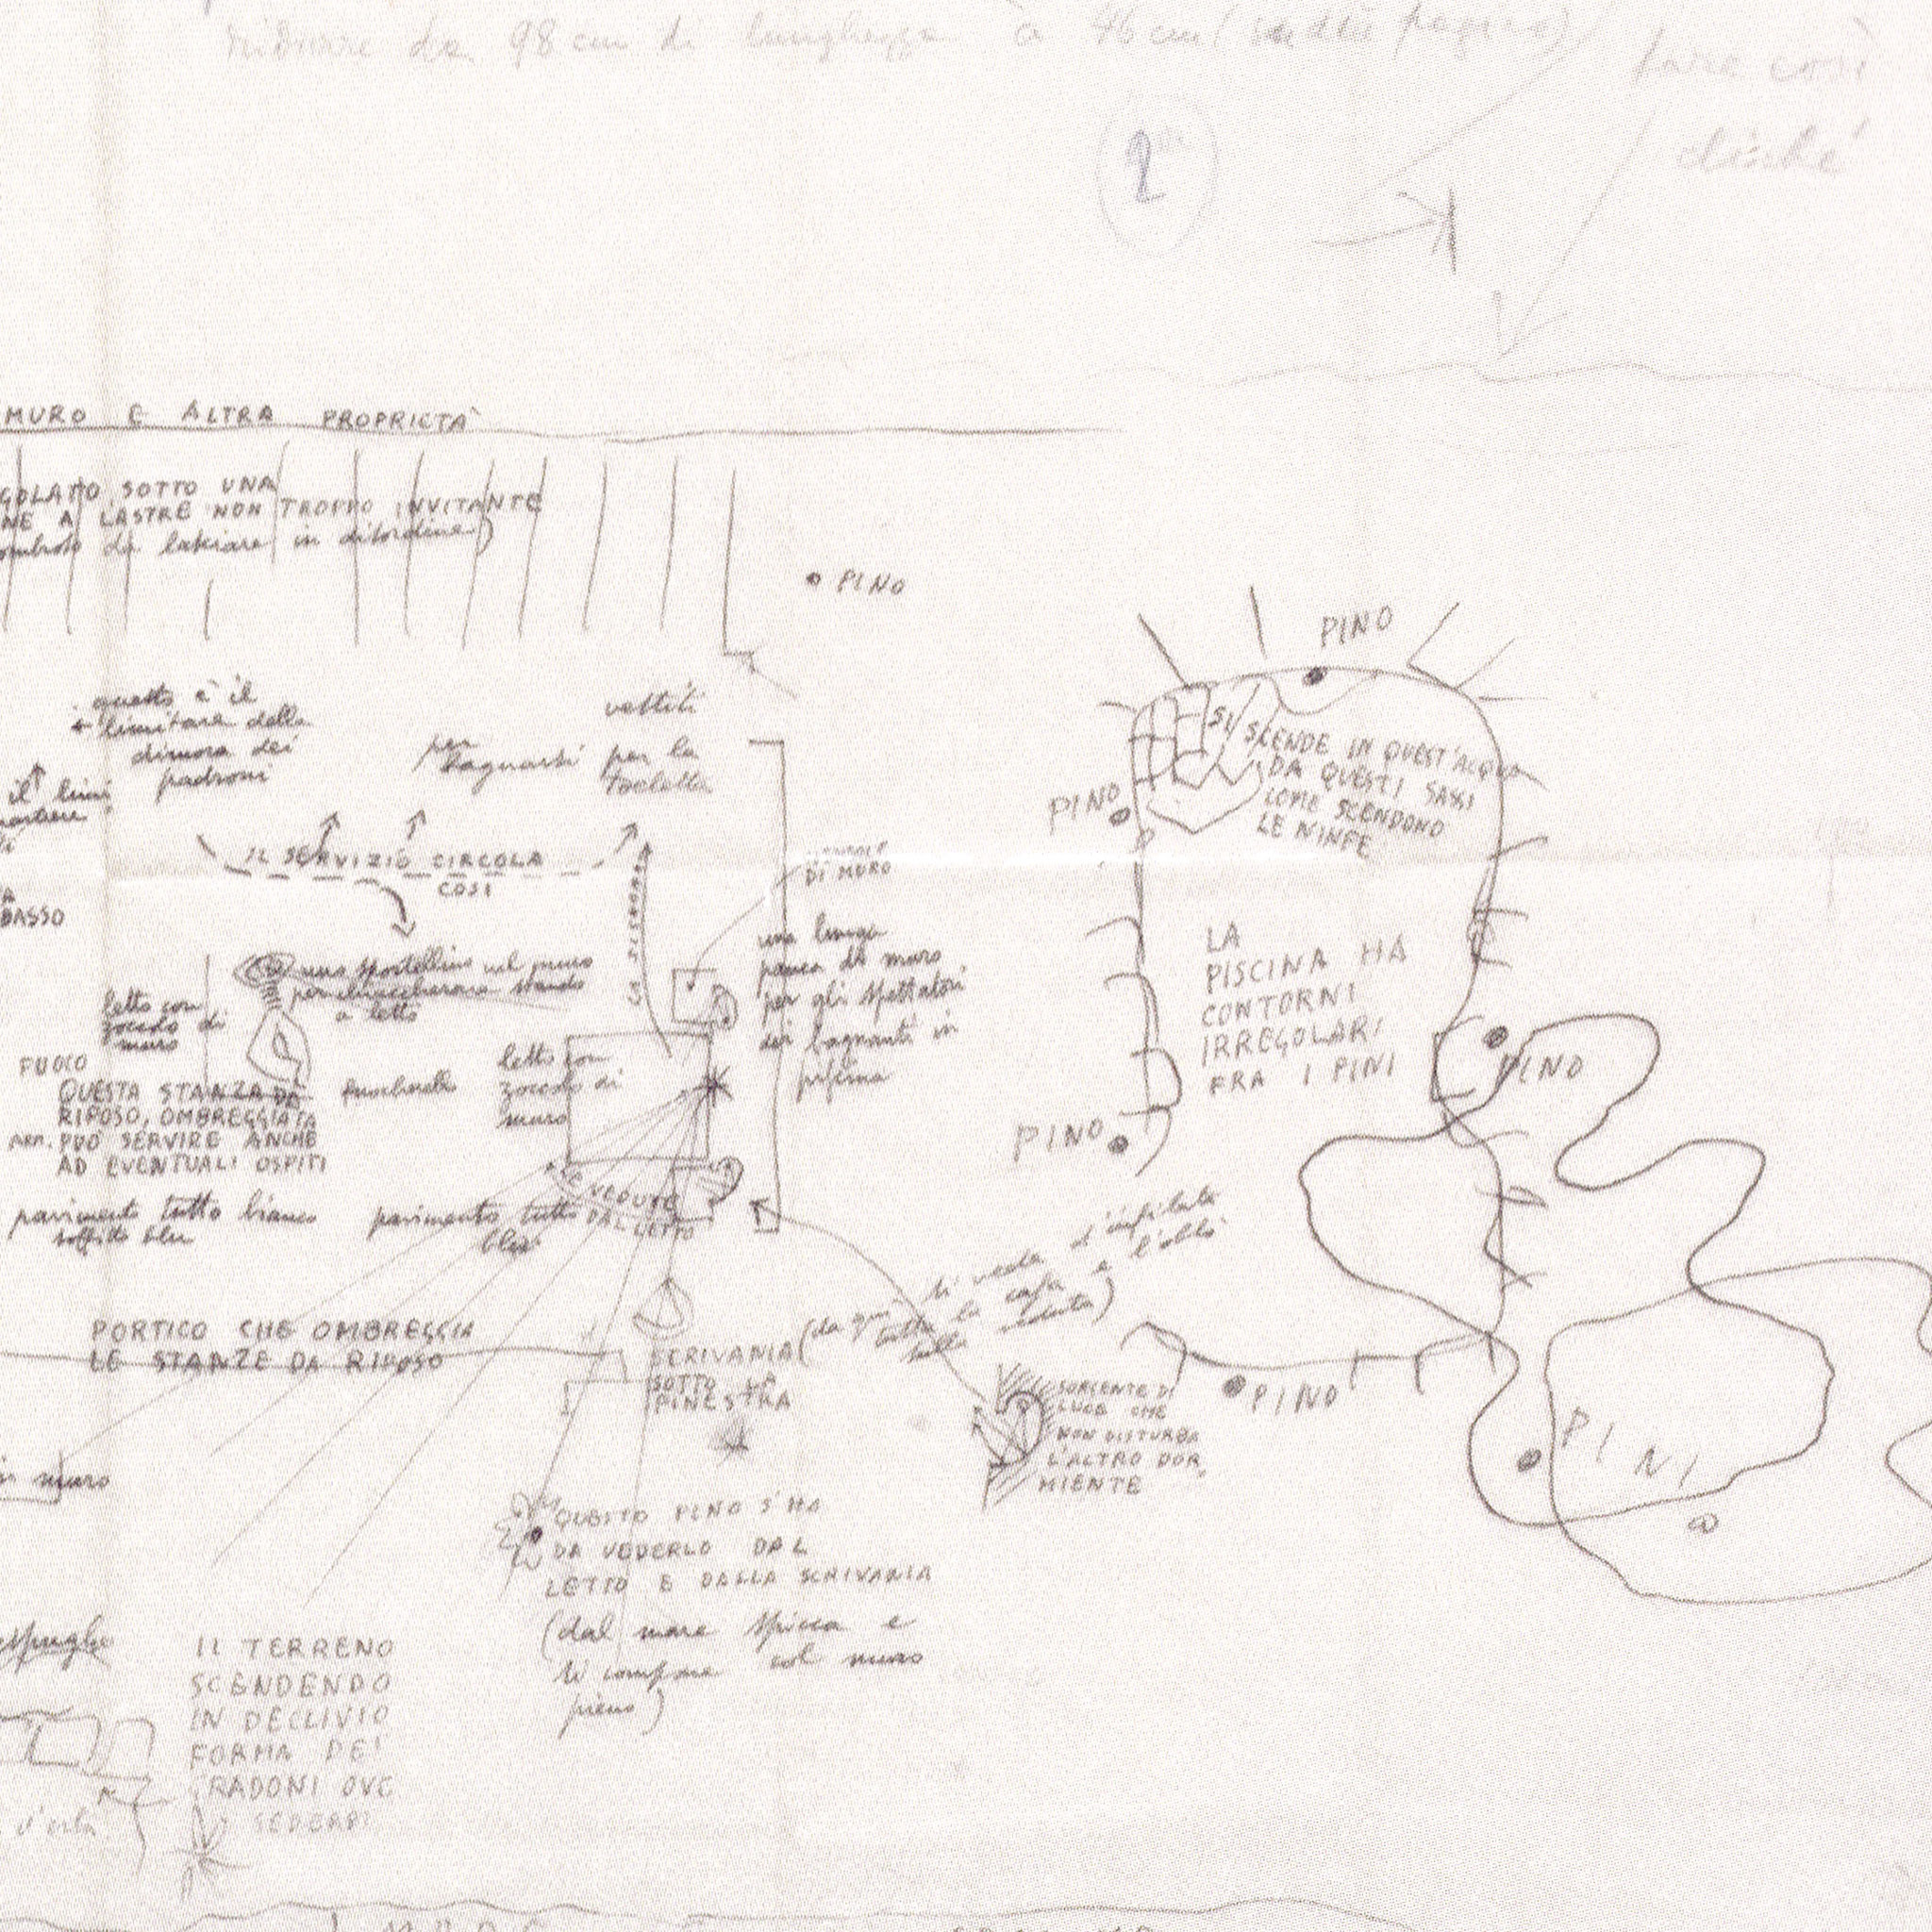 ridurre da 98 cm di lunghezza a 46 cm (
fare così
cliché
MURO E ALTRA PROPRIETÀ
GOLATO SOTTO UNA
NE A LASTRE NON TROPPO INVITANTE
da lasciare in disordine)
PINO
PINO
questo è il
limitare della
dimora dei
padroni
per
bagnarsi
vestiti
per la
toeletta
SI SCENDE IN QUEST'ACQUA
DA QUESTI SASSI
COME SCENDONO
LE NINFE
PINO
IL SERVIZIO CIRCOLA
COSI
DI MURO
BASSO
una lunga
panca di muro
per gli spettatori
dei bagnanti in
piscina
LA
PISCINA HA
CONTORNI
IRREGOLARI
FRA I PINI
uno sportellino nel muro
per chiacchierare stando
a letto
letto con
zoccolo di
muro
FUOCO
QUESTA STANZA DA
RIPOSO, OMBREGGIATA
ARM. PUÒ SERVIRE ANCHE
AD EVENTUALI OSPITI
letto con
zoccolo di
muro
PINO
PINO
VEDUTE
DAL LETTO
pavimento tutto bianco
soffitto blu
pavimento tutto
blu
(da qui si vede d'infilata
tutta la casa e l'oblò
sulla
PORTICO CHE OMBREGGIA
LE STANZE DA RIPOSO
SCRIVANIA
SOTTO LA
FINESTRA
SORGENTE DI
LUCE CHE
NON DISTURBA
L'ALTRO DOR
MIENTE
PINO
PINI
muro
QUESTO PINO S'HA
DA VEDERLO DAL
LETTO E DALLA SCRIVANIA
(dal mare spicca e
si compone col muro
pieno)
IL TERRENO
SCENDENDO
IN DECLIVIO
FORMA DEI
GRADONI OVE
SEDERSI